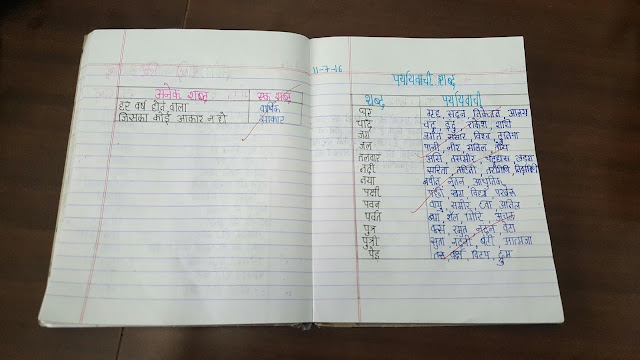 अनेक शब्द एक शब्द
हर वर्ष होने वाला वार्षिक
जिसका कोई आकार न हो
11-7-16
पर्यायवाची शब्द
शब्द पर्यायवाची
घर गृह, सदन, निकेतन, आलय
चाँद चंद्र, इंदु, राकेश, शशि
जग जगत, संसार, विश्व, दुनिया
जल पानी, नीर, सलिल, तोय
तलवार असि,
नदी सरिता, तटिनी,
नया नवीन, नूतन, आधुनिक
पक्षी पंछी, खग, विहग, पखेरू
पवन वायु, समीर, हवा, अनिल
पर्वत नग, शैल, गिरि, अचल
पुत्र सुत, नंदन, बेटा
पुत्री सुता, नंदिनी, बेटी, आत्मजा
पेड़ तरु, वृक्ष, विटप, द्रुम